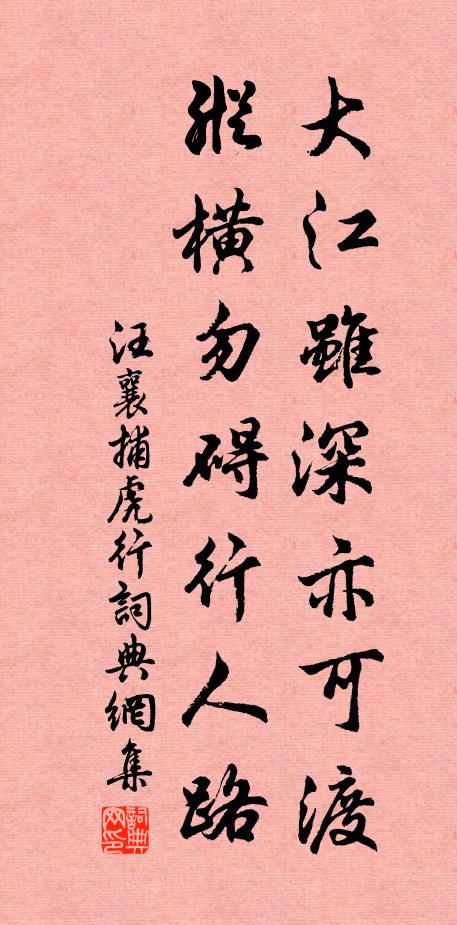 大江雖深亦可渡
縱橫勿碍行人路
汪襄捕虎行詞典網集
詞典网印